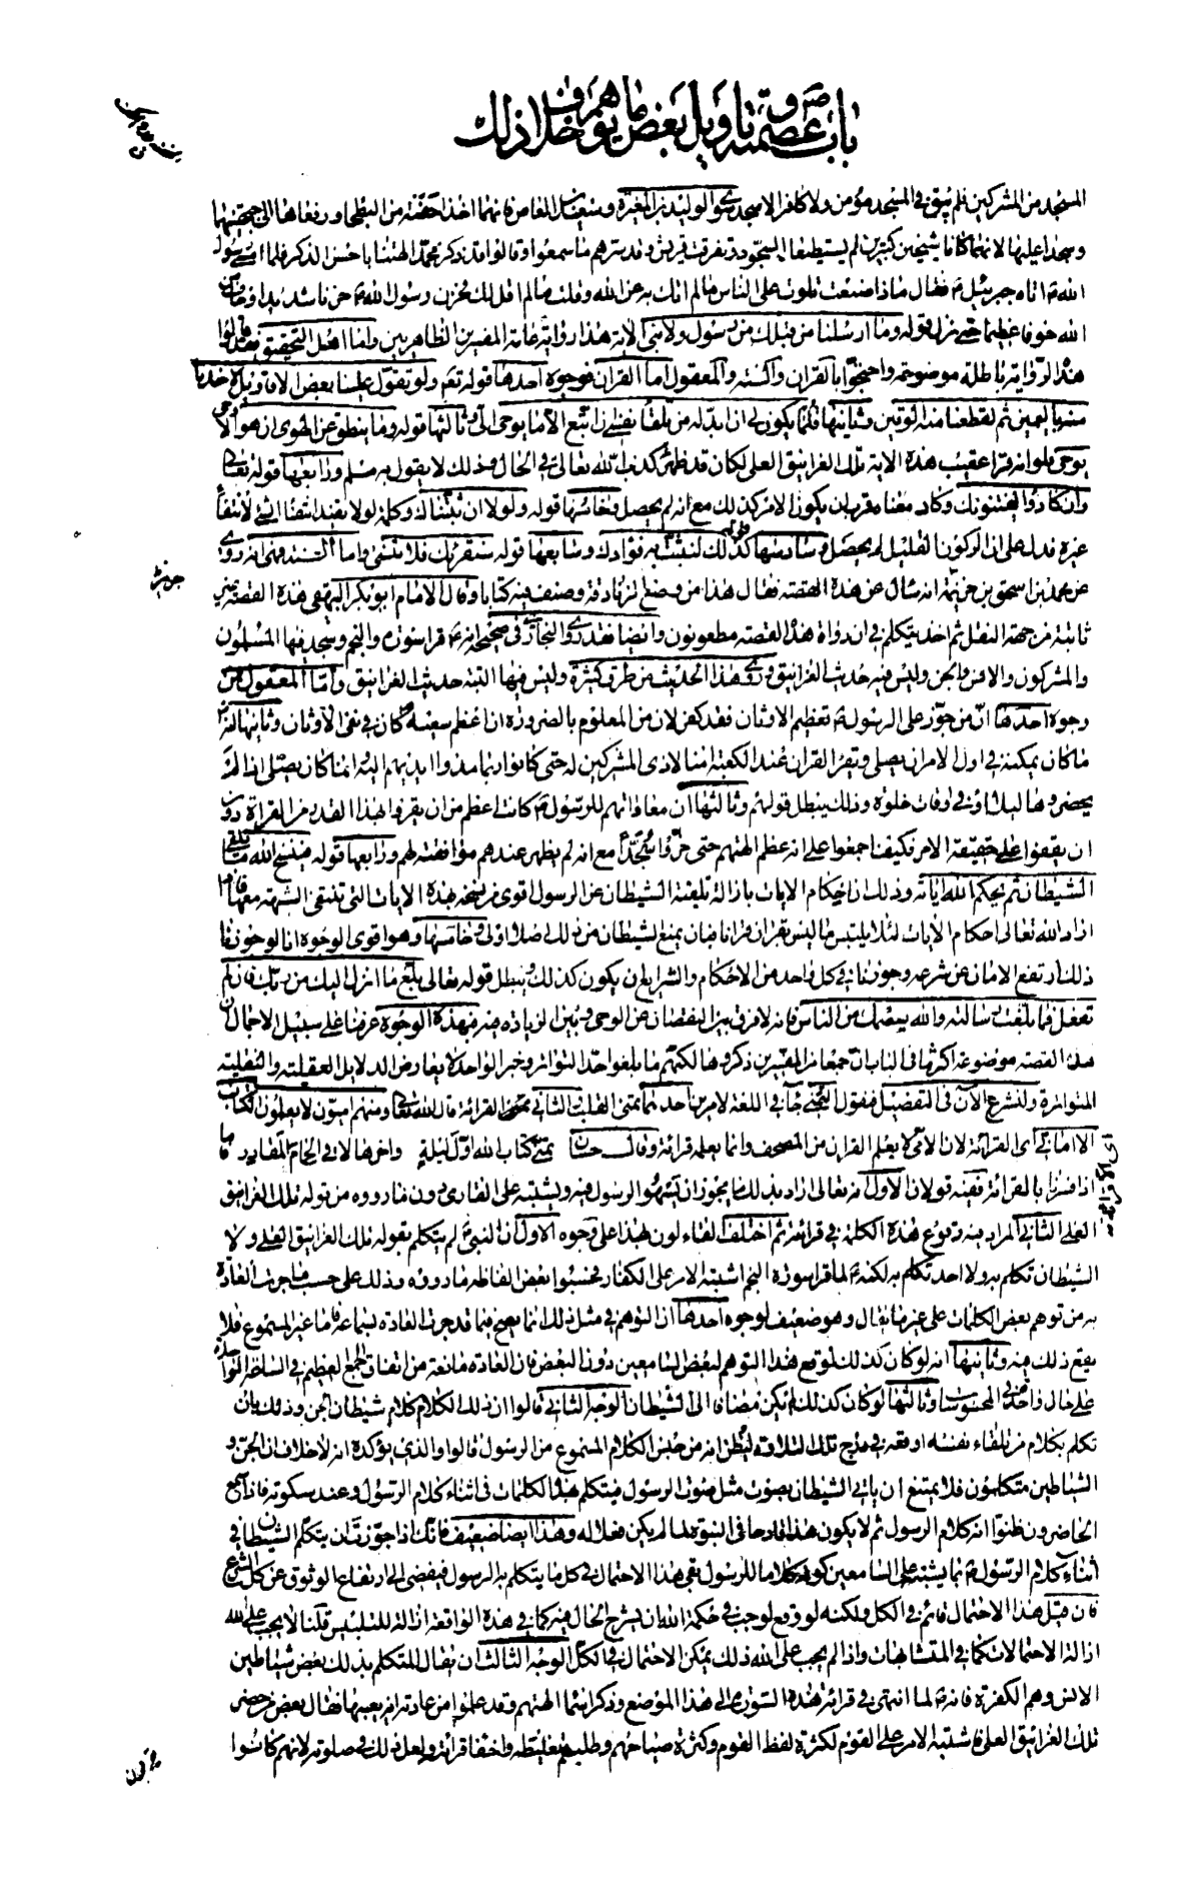 باب عصمته وتأويل بعض ما يوهم خلاف ذلك
المسجد من المشركين فلم يبق في المسجد مؤمن ولا كافر الا سجد سوى الوليد بن المغيرة وسعيد بن العاص فانهما اخذا حفنة من البطحاء ورفعاها الى جبهتيهما
وسجدا عليها لانهما كانا شيخين كبيرين لم يستطيعا السجود وتفرقت قريش وقد سرهم ما سمعوا وقالوا قد ذكر محمد الهتنا باحسن الذكر فلما امسى رسول
الله ص اتاه جبرئيل ع فقال ماذا صنعت تلوت على الناس ما لم اتك به عن الله وقلت ما لم اقل لك فحزن رسول الله ص حزنا شديدا وخاف من
الله خوفا عظيما حتى نزل قوله وما ارسلنا من قبلك من رسول ولا نبي الاية هذا رواية عامة المفسرين الظاهريين واما اهل التحقيق فقد قالوا
هذه الرواية باطلة موضوعة واحتجوا بالقران والسنة والمعقول اما القران فوجوه احدها قوله تعالى ولو تقول علينا بعض الاقاويل لاخذنا
منه باليمين ثم لقطعنا منه الوتين وثانيها قل ما يكون لي ان ابدله من تلقاء نفسي ان اتبع الا ما يوحى الي وثالثها قوله وما ينطق عن الهوى ان هو الا وحي
يوحى فلو انه قرا عقيب هذه الاية تلك الغرانيق العلى لكان قد ظهر كذب الله تعالى في الحال وذلك لا يقول به مسلم ورابعها قوله تعالى
وان كادوا ليفتنونك وكاد معناه قرب ان يكون الامر كذلك مع انه لم يحصل وخامسها قوله ولولا ان ثبتناك وكلمة لولا تفيد انتفاء الشئ لانتفاء
غيره فدل على ان الركون القليل لم يحصل وسادسها قوله كذلك لنثبت به فؤادك وسابعها قوله سنقرئك فلا تنسى واما السنة فهي انه روي
عن محمد بن اسحق بن خزيمة انه سئل عن هذه القصة فقال هذا من وضع الزنادقة وصنف فيه كتابا وقال الامام ابو بكر البيهقي هذه القصة غير
ثابتة من جهة النقل ثم اخذ يتكلم في ان رواة هذه القصة مطعونون وايضا فقد روى البخاري في صحيحه انه ع قرا سورة والنجم وسجد فيها المسلمون
والمشركون والانس والجن وليس فيه حديث الغرانيق وروي هذا الحديث من طرق كثيرة وليس فيها البتة حديث الغرانيق واما المعقول فمن
وجوه احدها ان من جوز على الرسول ص تعظيم الاوثان فقد كفر لان من المعلوم بالضرورة ان اعظم سعيه كان في نفي الاوثان وثانيها انه ع
ما كان يمكنه في اول الامر ان يصلي ويقرا القران عند الكعبة امنا لاذى المشركين له حتى كانوا ربما مدوا ايديهم اليه وانما كان يصلي اذا لم
يحضروها ليلا او في اوقات خلوة وذلك يبطل قولهم وثالثها ان معاداتهم للرسول ص كانت اعظم من ان يقروا بهذا القدر من القراءة دون
ان يقفوا على حقيقة الامر فكيف اجمعوا على انه عظم الهتهم حتى خروا سجدا مع انه لم يظهر عندهم موافقته لهم ورابعها قوله فينسخ الله ما يلقي
الشيطان ثم يحكم الله اياته وذلك لان احكام الايات بازالة تلقية الشيطان عن الرسول اقوى من نسخه بهذه الايات التي تنتقي الشبهة معها فاذا
اراد الله تعالى احكام الايات لئلا يلتبس ما ليس بقران قرانا فبان يمنع الشيطان من ذلك اصلا اولى وخامسها وهو اقوى الوجوه انا لو جوزنا
ذلك ارتفع الامان عن شرعه وجوزنا في كل واحد من الاحكام والشرايع ان يكون كذلك ويبطل قوله تعالى بلغ ما انزل اليك من ربك فان لم
تفعل فما بلغت رسالته والله يعصمك من الناس فانه لا فرق بين النقصان عن الوحي وبين الزيادة فيه فبهذه الوجوه عرفنا على سبيل الاجمال ان
هذه القصة موضوعة اكثر ما في الباب ان جمعا من المفسرين ذكروها لكنهم ما بلغوا حد التواتر وخبر الواحد لا يعارض الدلايل العقلية والنقلية
المتواترة ولنشرع الان في التفصيل فنقول التمني جاء في اللغة لامرين احدهما تمني القلب الثاني تمنى القراءة قال الله تعالى ومنهم اميون لا يعلمون الكتاب
الا اماني اي القراءة لان الامي لا يعلم القران من المصحف وانما يعلمه قراءة وقال حسان تمنى كتاب الله اول ليلة واخرها لاقى الحمام المقادير
اذا فسرنا بالقراءة ففيه قولان الاول انه تعالى اراد بذلك ما يجوز ان يسهو الرسول فيه ويشتبه على القاري دون ما رووه من قوله تلك الغرانيق
العلى الثاني المراد منه وقوع هذه الكلمة في قراءته ثم اختلف القائلون بهذا على وجوه الاول ان النبي ص لم يتكلم بقوله تلك الغرانيق العلى ولا
الشيطان تكلم به ولا احد تكلم به لكنه ع لما قرا سورة النجم اشتبه الامر على الكفار فحسبوا بعض الفاظه ما رووه وذلك على حسب ما جرت العادة
به من توهم بعض الكلمات على غير ما يقال وهو ضعيف لوجوه احدها ان التوهم في مثل ذلك انما يصح فيما قد جرت العادة بسماعه فاما غير المسموع فلا
يقع ذلك فيه وثانيها انه لو كان كذلك لوقع هذا التوهم لبعض السامعين دون البعض فان العادة مانعة من اتفاق الجمع العظيم في الساعة الواحدة
على خيال واحد في المحسوسات وثالثها لو كان كذلك لم يكن مضافا الى الشيطان الوجه الثاني قالوا ان ذلك الكلام كلام شيطان الجن وذلك بان
تكلم بكلام من تلقاء نفسه اوقعه في درج تلك التلاوة ليظن انه من جنس الكلام المسموع من الرسول قالوا والذي يؤكده انه لا خلاف ان الجن و
الشياطين متكلمون فلا يمتنع ان ياتي الشيطان بصوت مثل صوت الرسول فيتكلم بهذه الكلمات في اثناء كلام الرسول وعند سكوته فاذا سمع
الحاضرون ظنوا انه كلام الرسول ثم لا يكون هذا قادحا في النبوة لما لم يكن فعلا له وهذا ايضا ضعيف فانك اذا جوزت ان يتكلم الشيطان في
اثناء كلام الرسول ص بما يشتبه على السامعين كونه كلاما للرسول بقي هذا الاحتمال في كل ما يتكلم به الرسول فيفضي الى ارتفاع الوثوق عن كل الشرع
فان قيل هذا الاحتمال قائم في الكل ولكنه لو وقع لوجب في حكمة الله ان يشرح الحال فيه كما في هذه الواقعة ازالة للتلبيس قلنا لا يجب على الله
ازالة الاحتمالات كما في المتشابهات واذا لم يجب على الله ذلك يمكن الاحتمال في الكل الوجه الثالث ان يقال المتكلم بذلك بعض شياطين
الانس وهم الكفرة فانه ع لما انتهى في قراءة هذه السورة الى هذا الموضع وذكر اسماء الهتهم وقد علموا من عادته انه يعيبها فقال بعض من حضر
تلك الغرانيق العلى فاشتبه الامر على القوم لكثرة لفظ القوم وكثرة صياحهم وطلبهم تغليطه واخفاء قراءته ولعل ذلك في صلوته لانهم كانوا